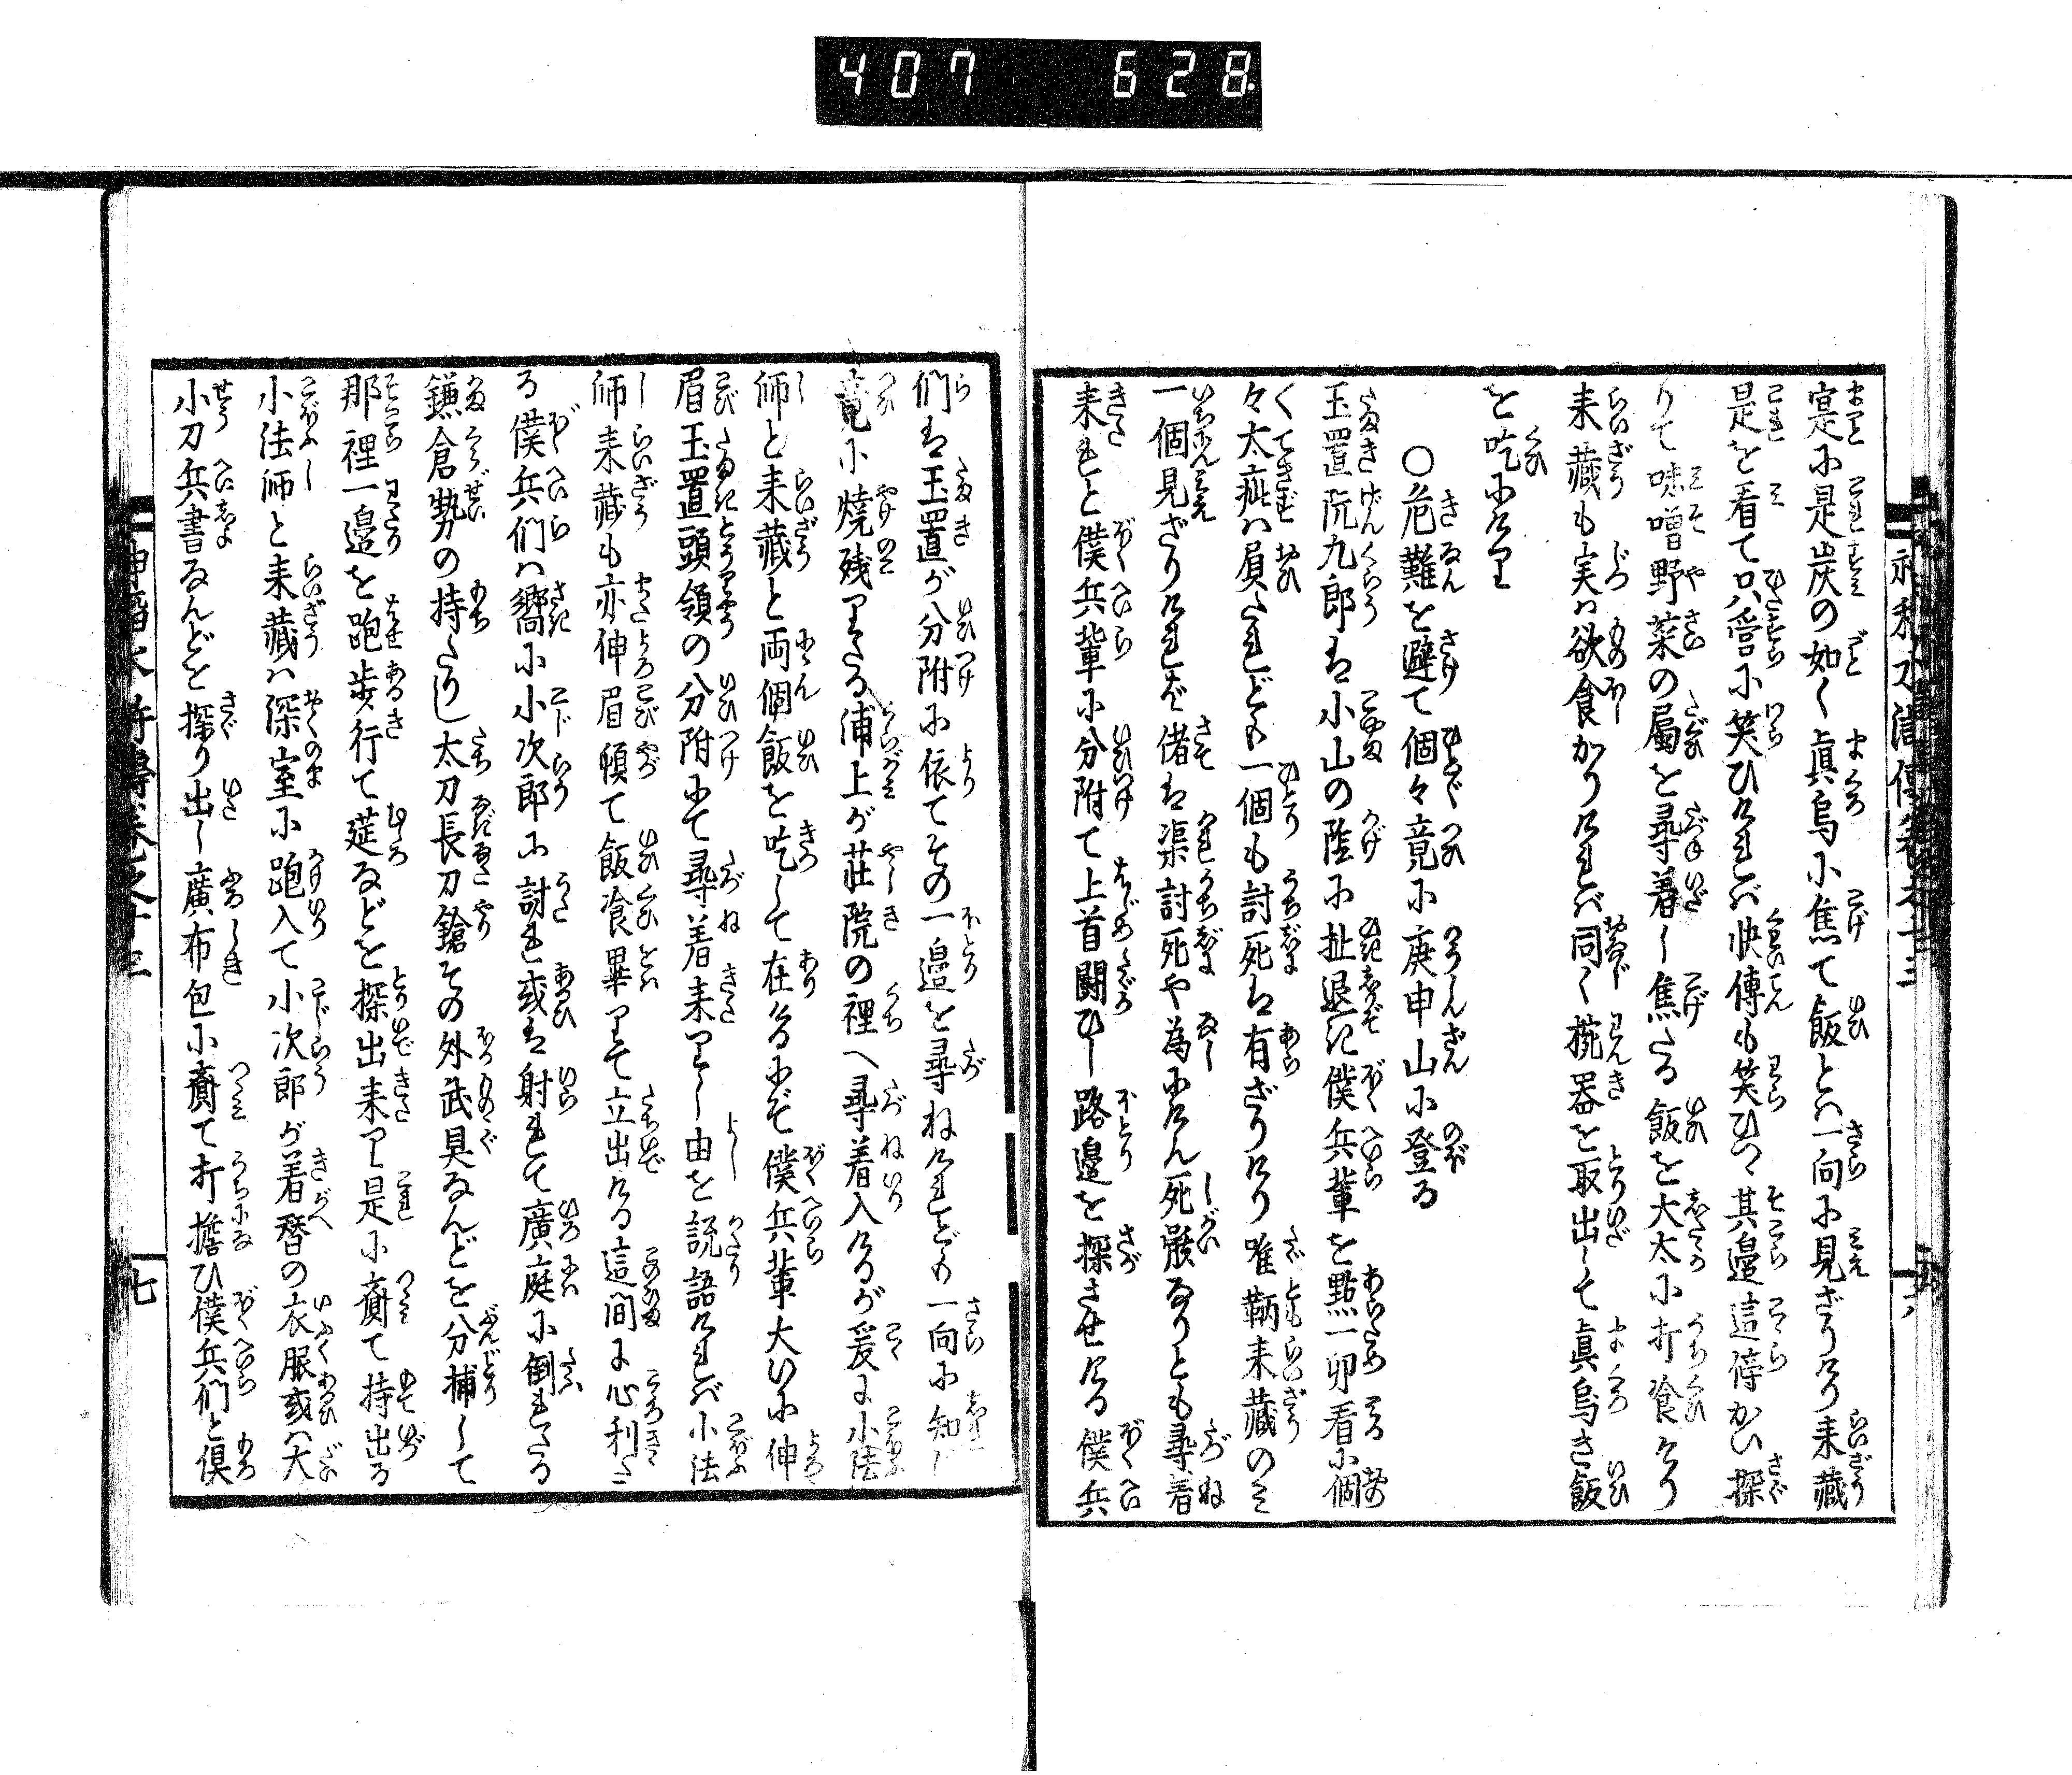 407 628
寔に是炭の如く眞烏に焦て飯とハ一向に見ざりけり耒藏
是を看て只管に笑ひけれバ快傳も笑ひつゝ其邉這停かい探
りて味噌野菜の屬を尋着し焦たる飯を大太に打飡けり
耒藏も実ハ欲食かりけれバ同く椀器を取出して眞烏き飯
を吃にけり
○危難を避て個々竟に庚申山に登る
玉置阮九郎ハ小山の陰に扯退き僕兵輩を點卯看に個
々太疵ハ屓たれども一個も討死ハ有ざりけり唯鞆耒藏のミ
一個見ざりけれバ偖ハ渠討死や為にけん死骸なりとも尋着
耒れと僕兵輩に分附て上首闘ひし路邉を探させける僕兵
六
們ハ玉置が分附に依てその一邉を尋ねけれども一向に知れ
竟に燒残りたる浦上が莊院の裡へ尋着入けるが爰に小法
師と耒藏と両個飯を吃して在けるにぞ僕兵輩大いに伸
眉玉置頭領の分附にて尋着耒りし由を説語けれバ小法
師耒藏も亦伸眉頓て飯飡畢りて立出ける這間に心利た
る僕兵们ハ嚮に小次郎に討れ或ハ射れて廣庭に倒れたる
鎌倉勢の持たりし太刀長刀鎗その外武具なんどを分捕して
那裡一邉を跑歩行て莚などを探出耒り是に裹て持出る
小法師と耒藏ハ深室に跑入て小次郎が着替の衣服或ハ大
小刀兵書なんどを探り出し廣布包に裹て打擔ひ僕兵们と倶
水滸傳巻之十三
七